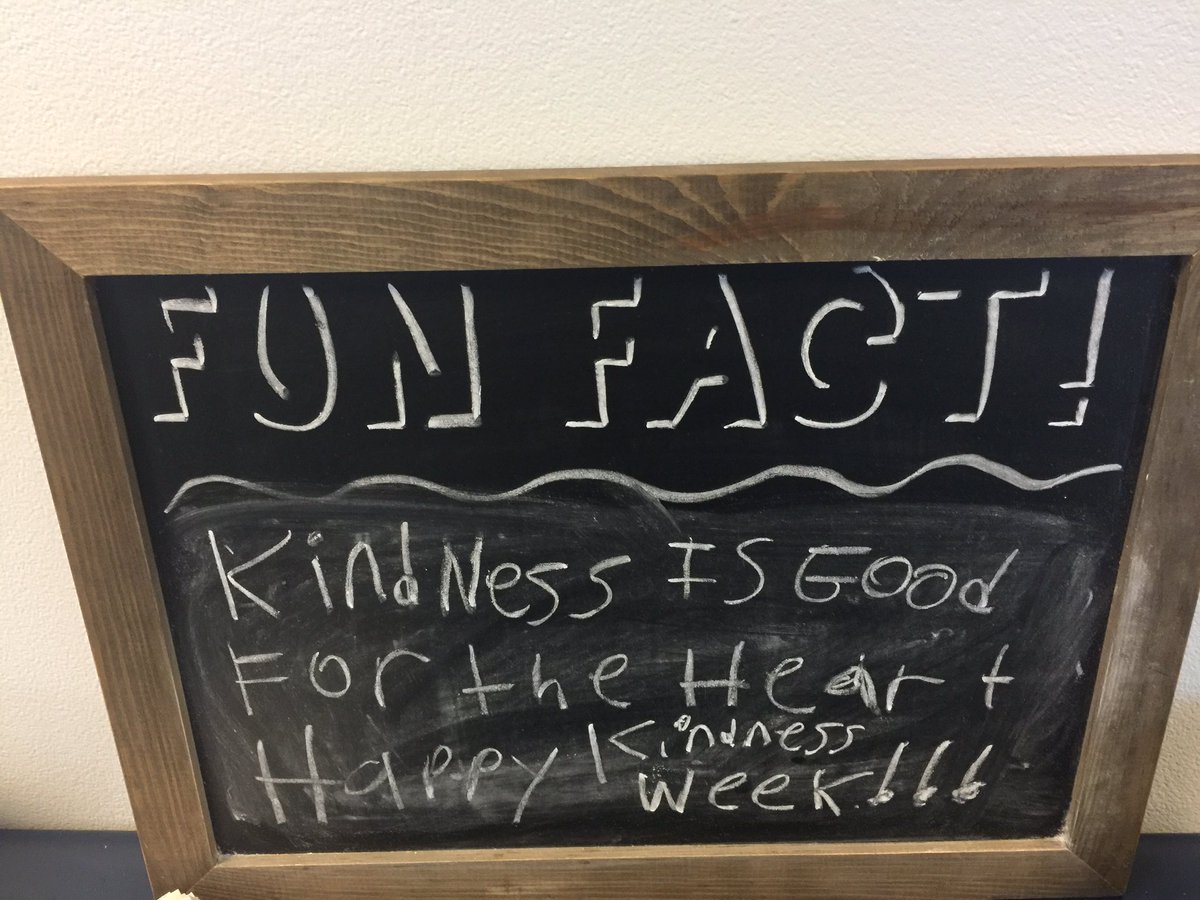 FUN FACT!
KindNess IS Good
For the Heart
Happy Kindness
week!!!